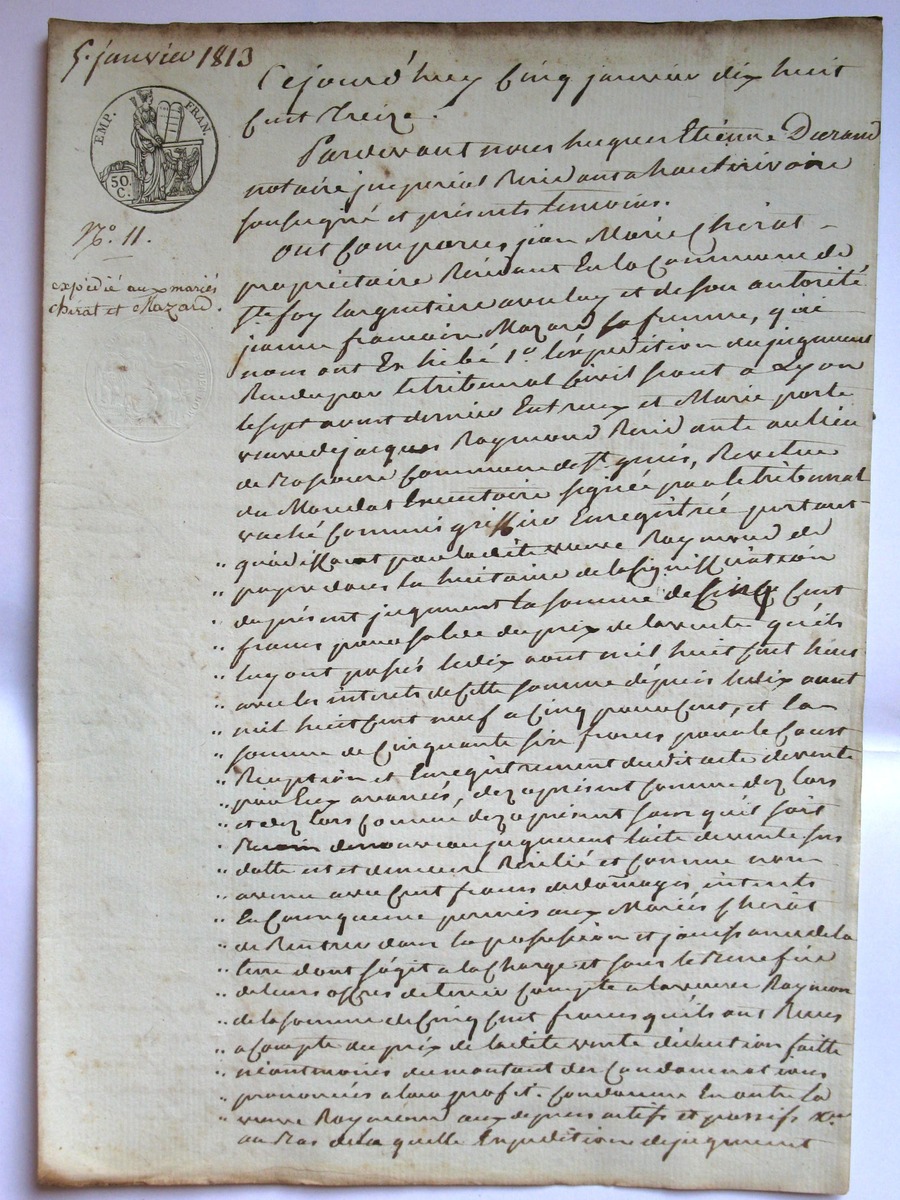 5. janvier 1813
EMP. FRAN.
50. C.
N.o 11.
expédié aux mariés
chirat et Mazard.
Cejourd'huy Cinq janvier dix huit
Cent Treize.
Pardevant nous hugues Etienne Durand
notaire imperial Residant a hauterivoire
soussigné et présents temoins.
ont Comparus jean Marie Chirat
propriétaire Résidant En la Commune de
Ste foy largentiere avec luy et de son autorité
jeanne francoise Mazard sa femme, qui
nous ont Exhibé 1.o L'expédition du jugement
Rendu par le tribunal Civil séant a Lyon
le sept avout dernier Entre eux et Marie porte
veuve de jacques Raymond Residante au lieu
de Commune de St. genis, Revetue
du Mandat Executoire signée par le tribunal
vaché Commis greffier Enregistrée portant
„ que disant par ladite veuve Raymond de
„ payer dans la huitaine de la signiffication
„ du présent jugement la somme de Cinq Cent
„ francs pour solde du prix de la vente qu'ils
„ luy ont passés le dix aout mil huit Cent
„ avec les interets de Cette somme depuis le dix aout
„ mil huit Cent neuf a Cinq pour Cent, et la
„ somme de Cinquante six francs pour le Coust
„ Reception et Enregistrement dudit acte de vente
„ par Eux avancés, dez a présent comme dez lors
„ et dez lors comme dez a présent sans qu'il soit
„ Besoin de nouveau jugement l'acte de vente sus
„ datté est et demeure Resilié et comme non
„ avenu avec Cent francs de domages interets
„ En Consequence permis aux Mariés Chirat
„ de Rentrer dans la possession et jouissance de la
„ terre dont s'agit a la Charge et sous le Benefice
„ de leurs offres de tenir Compte a la veuve Raymon
„ de la somme de Cinq Cent francs qu'ils ont Recus
„ a Compte du prix de ladite vente déduction faitte
„ néantmoins du montant des Condamnations
„ prononcées a leur profit. Condamne En outre la
„ veuve Raymond aux depens actifs et passifs
au Bas de laquelle Expedition de jugement